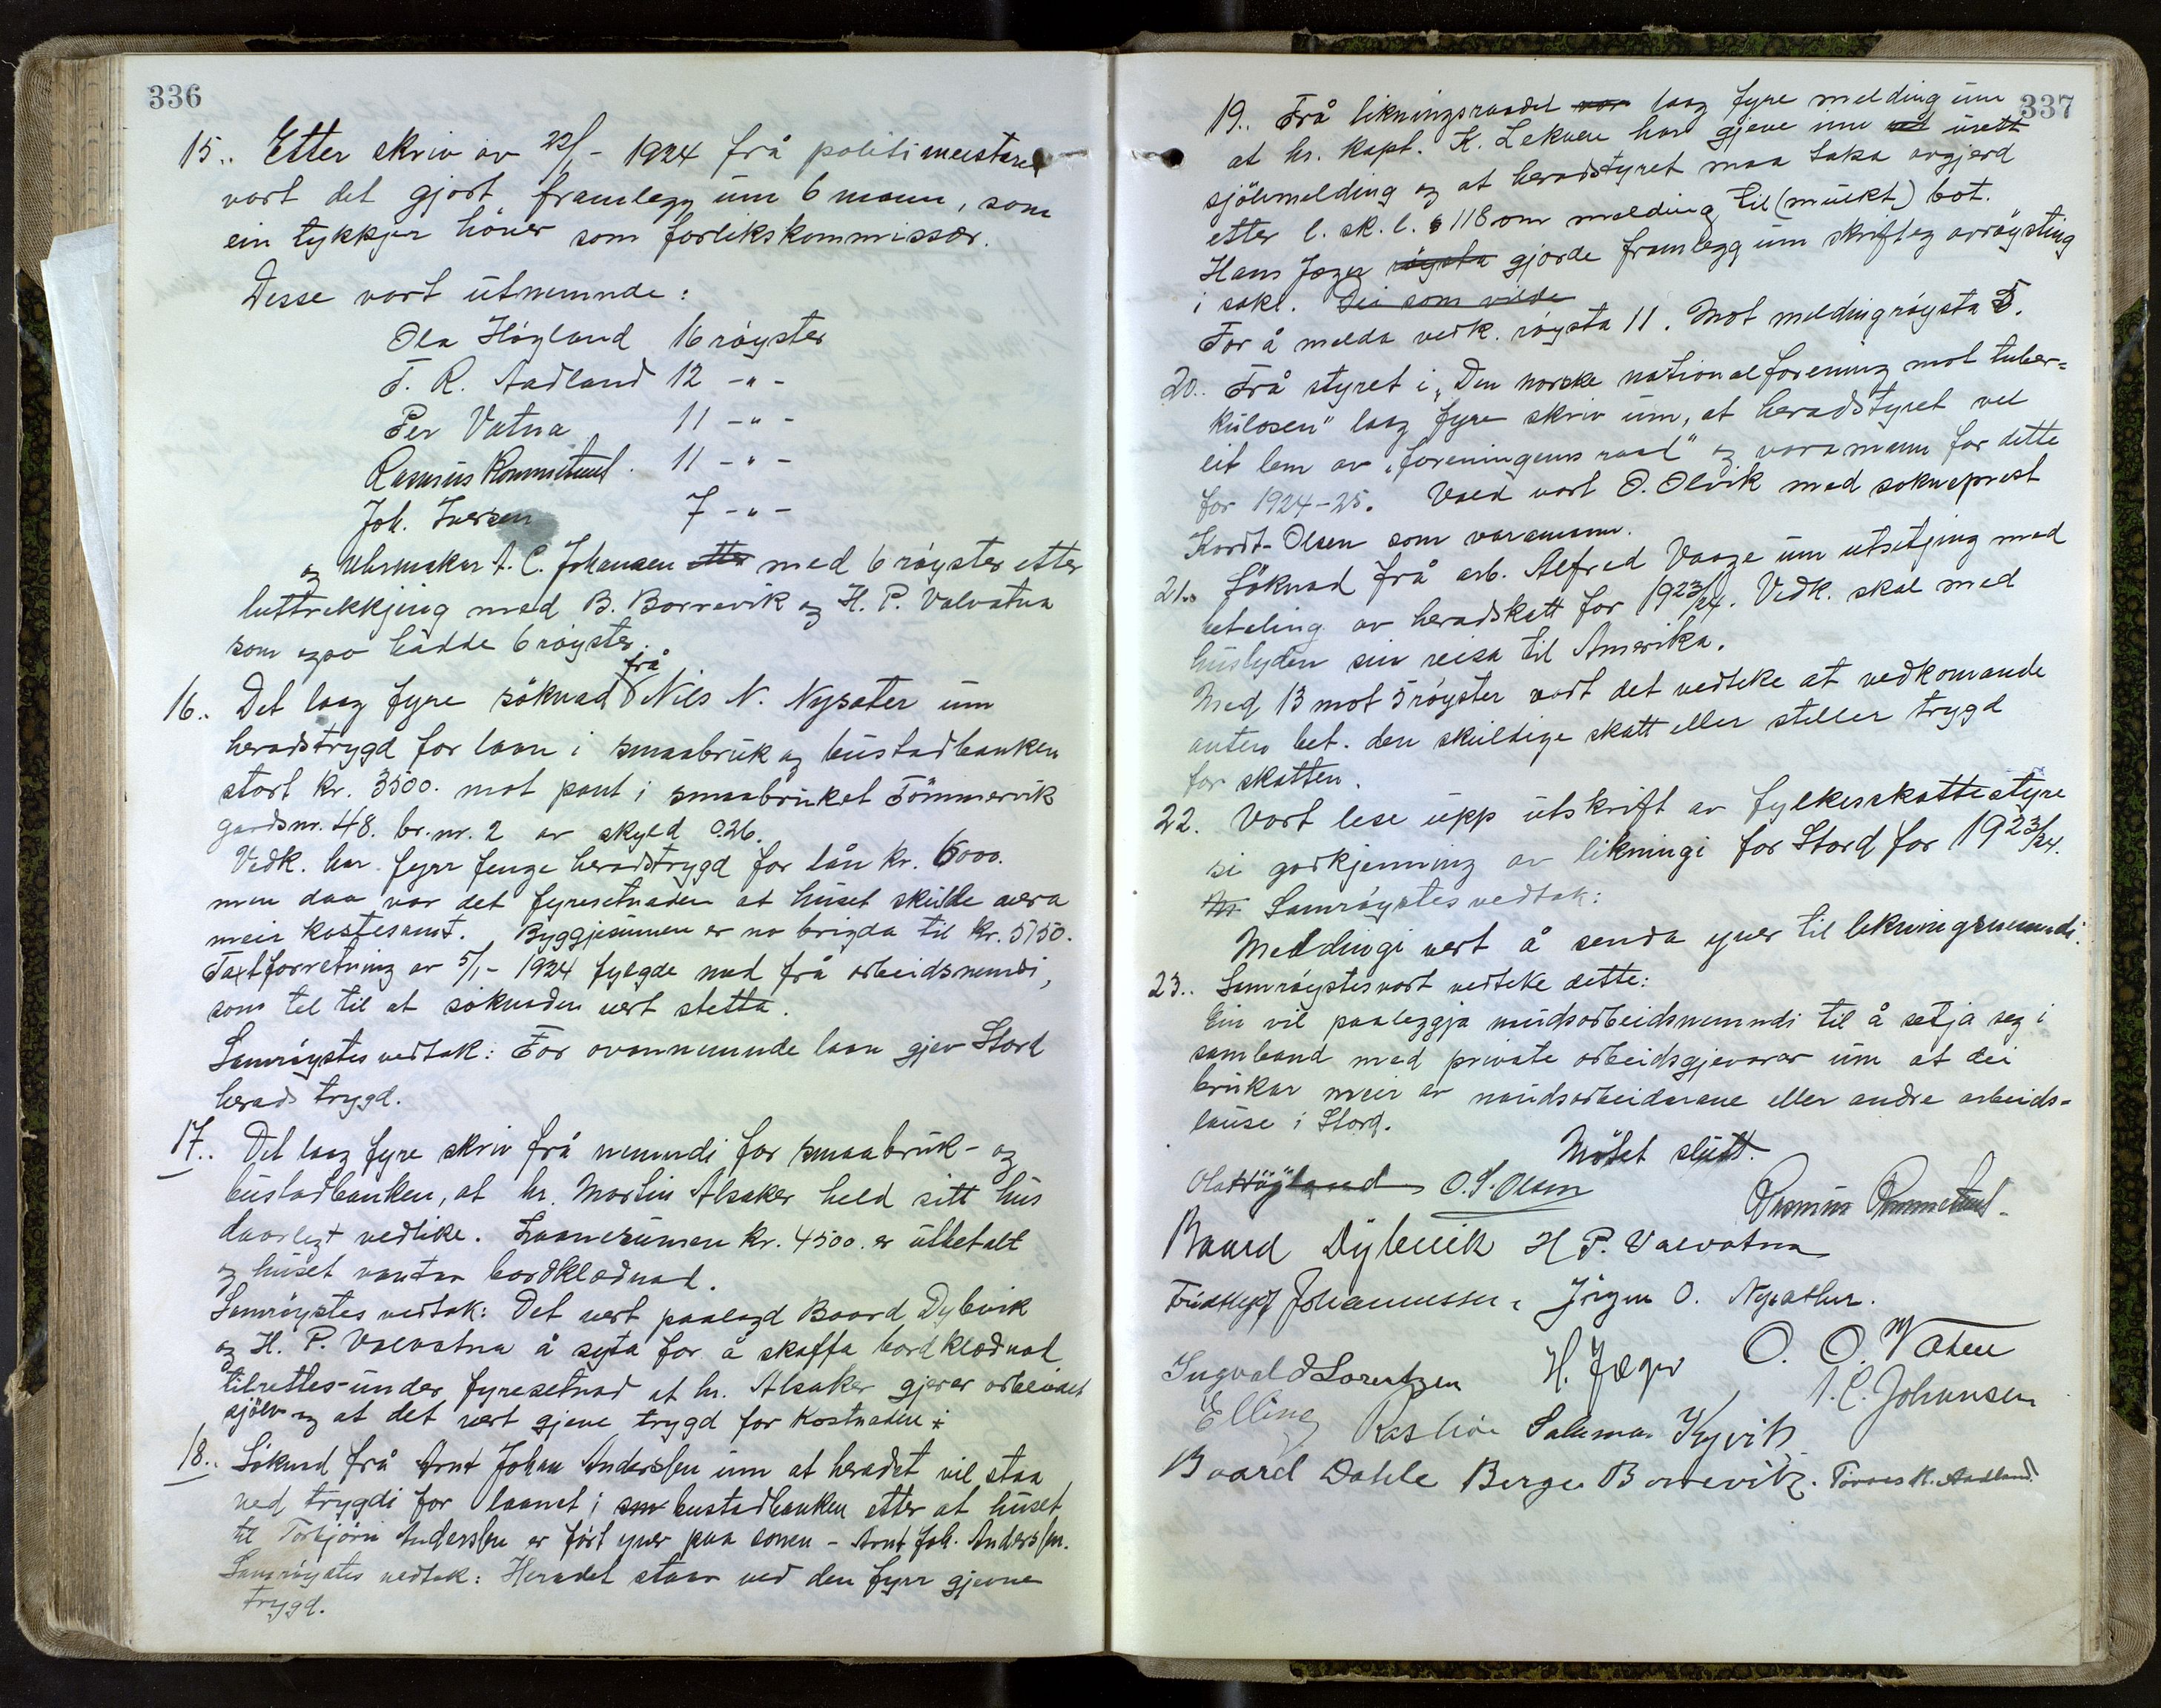 336
15.. Etter skriv av 22/1 - 1924 frå politimeistaren
vart det gjort framlegg um 6 mann, som
ein tykkjer höver som forlikskommissær.
Desse vart utnemnde:
Ola Högland 16 röyster
T. R. Aadland 12 -"-
Per Vatna 11 -"-
Rasmus Rommetveit. 11 -"-
Joh. Iversen 7 -"-
og Uhrmakar A. C. Johansen etter med 6 röyster etter
luttrekkjing med B. Borrevik og H. P. Valvatna
som ogso hadde 6 röyster.
16.. Det laag fyre söknad frå Nils N. Nysæter um
heradstrygd for laan i smaabruk og bustadbanken
stort kr. 3500. mot pant i smaabruket Tömmervik
gardsnr. 48. br.nr. 2 av skyld 026.
Vedk. har fyrr fenge heradstrygd for lån kr. 6000.
men daa var det fyresetnaden at huset skulde vera
meir kostesamt. Byggjesumen er no brigda til kr. 5150.
Taxtforretning av 5/1 - 1924 fylgde med frå arbeidsnemndi,
som tel til at söknaden vert stetta.
Samröystes vedtak: For ovannemnde laan gjev Stord
herad trygd.
17.. Det laag fyre skriv frå nemndi for smaabruk- og
bustadbanken, at hr. Martin Alsaker held sitt hus
daarlegt vedlike. Laanesumen kr. 4500. er utbetalt
og huset vantar bordklædnad.
Samröystes vedtak: Det vert paalagd Baard Dybvik
og H. P. Valvatna å syta for å skaffa bordklædnad
tilrettes under fyresetnad at hr. Alsaker gjerer arbeidet
sjölv og at det vert gjeve trygd for kostnaden.
18.. Söknad frå Arnt Johan Anderssen um at heradet vil staa
ved trygdi for laanet i sm bustadbanken etter at huset
til Torbjörn Anderssen er fört yver paa sonen - Arnt Joh. Anderssen.
Samröystes vedtak: Heradet staar ved den fyrr gjevne
trygd.
337
19.. Frå likningsraadet var laag fyre melding um
at hr. kapt. K. Lekven har gjeve inn urett
sjölvmelding og at heradstyret maa taka avgjerd
etter l. sk. l. § 118 om melding til (mulkt) bot.
Hans Jæger röysta gjorde framlegg um skriftleg avröysting
i saki. Dei som vilde
For å melda vedk. röysta 11. Mot melding röysta 5.
20.. Frå styret i "Den norske nationalforening mot tuber=
kulosen" laag fyre skriv um, at heradstyret vel
eit lem av "foreningens raad" og varamann for dette
for 1924-25. Vald vart O. Olvik med sokneprest
Kordt-Olsen som varamann.
21.. Söknad frå arb. Alfred Vaage um utsetjing med
betaling av heradskatt for 1923/24. Vedk. skal med
huslyden sin reisa til Amerika.
Med 13 mot 5 röyster vart det vedteke at vedkomande
anten bet. den skuldige skatt eller steller trygd
for skatten.
22. Vart lese upp utskrift av fylkesskattestyre
si godkjenning av likningi for Stord for 1923/24.
Samröystes vedtak:
Meldingi vert å senda yver til likningsnemndi.
23.. Samröystes vart vedteke dette:
Ein vil paaleggja naudsarbeidsnemndi til å setja seg i
samband med private arbeidsgjevarar um at dei
brukar meir av naudsarbeidarane eller andre arbeids=
lause i Stord.
Mötet slutt.
Ola Högland O. S. Olsen
Rasmus Rommetveit.
Baard Dybvik H P. Valvatna
Fridthjof Johannessen, Jörgen O. Nysæther.
Ingvald Lorentzen H. Jæger O. O. Vatna
A. C. Johansen
Elling Salemon Kyvik
Baard Dahle Berge Borrevik. Törres R. Aadland.